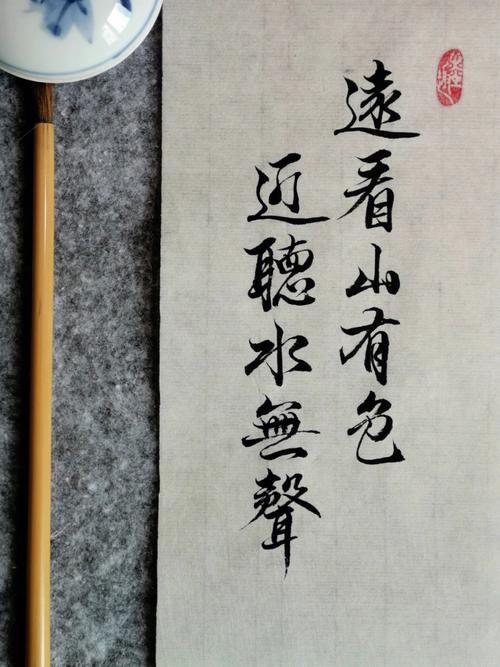 遠看山有色
近聽水無聲